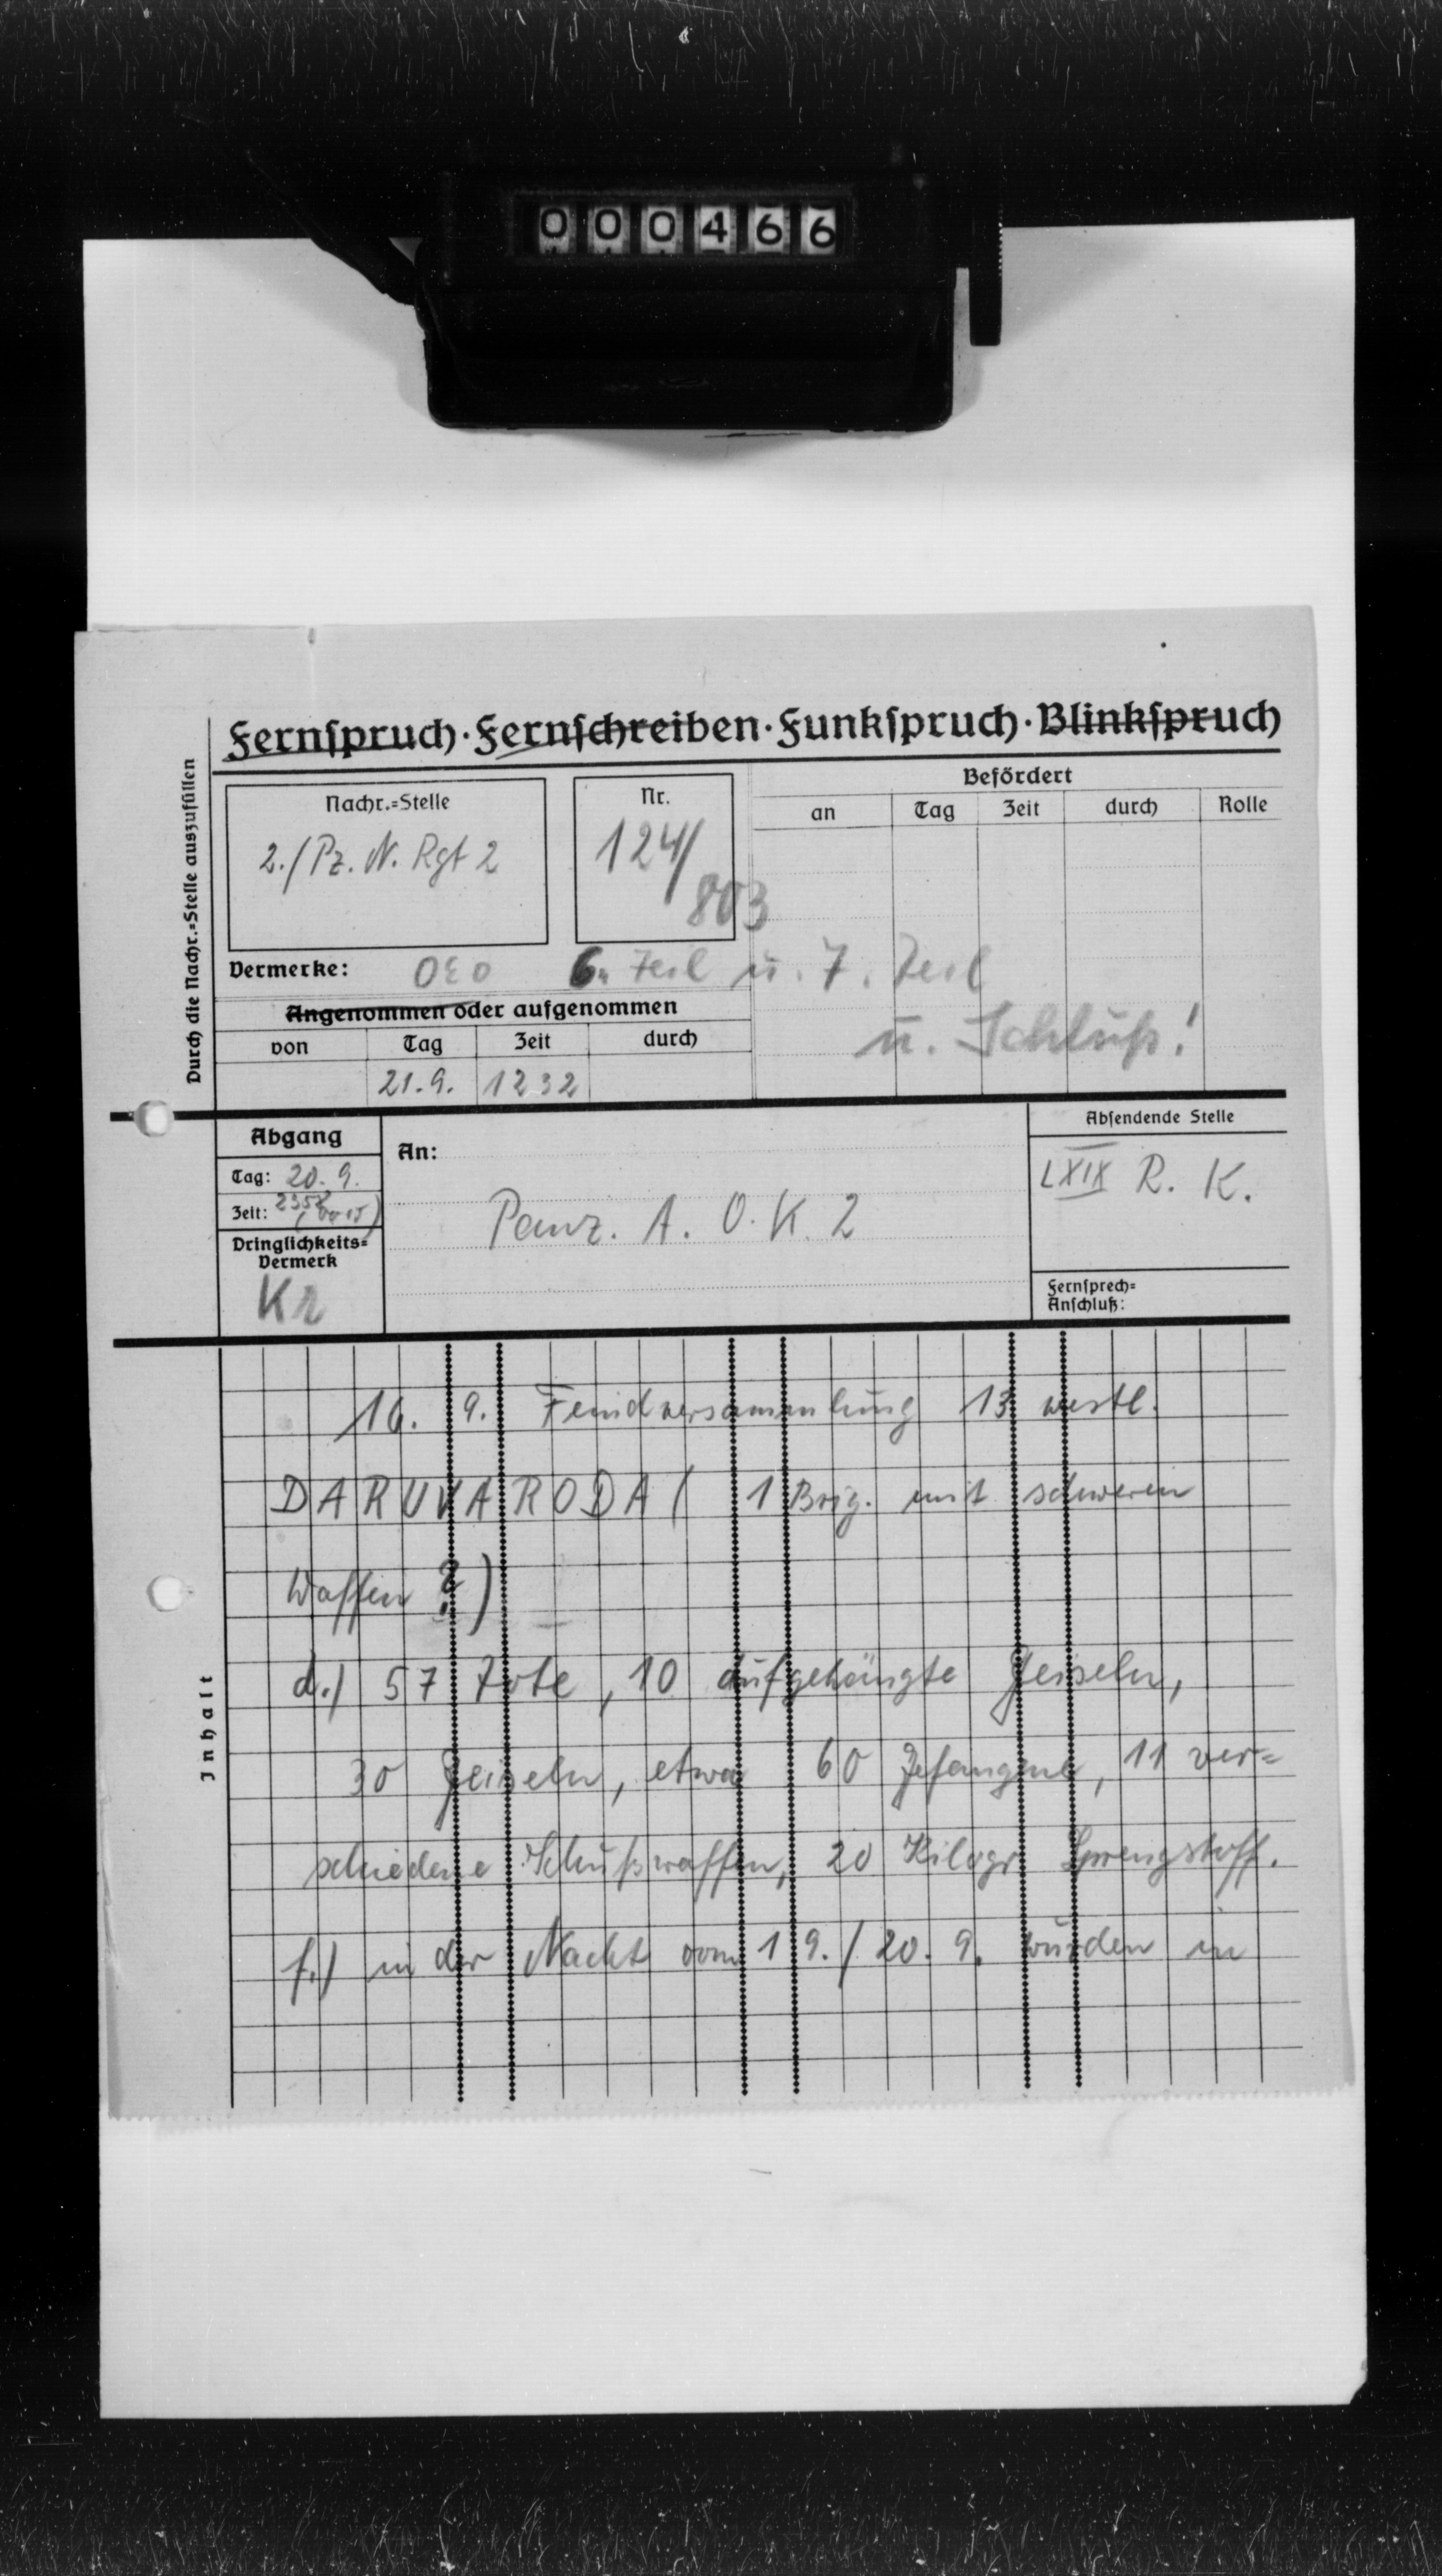 000466
Fernspruch · Fernschreiben · Funkspruch · Blinkspruch
Durch die Nachr.=Stelle auszufüllen
Nachr.=Stelle
2./Pz. N. Rgt 2
Nr.
124/
803
Befördert
an Tag Zeit durch Rolle
Vermerke: 6. Teil u. 7. Teil
u. Schluß!
Angenommen oder aufgenommen
von Tag Zeit durch
21.9. 1232
Abgang
Tag: 20. 9.
Zeit:
Dringlichkeits=
Vermerk
Kr
An:
Panz. A. O. K. 2
Absendende Stelle
LXIX R. K.
Fernsprech=
Anschluß:
Inhalt
16. 9. Feindversammlung 13 westl.
DARUVARODA ( 1 Brig. mit schweren
Waffen ?)
d.) 57 Tote, 10 aufgehängte Geiseln,
30 Geiseln, etwa 60 Gefangene, 11 ver=
schiedene Schußwaffen, 20 Kilogr Sprengstoff.
f.) in der Nacht vom 19./20. 9. wurden in